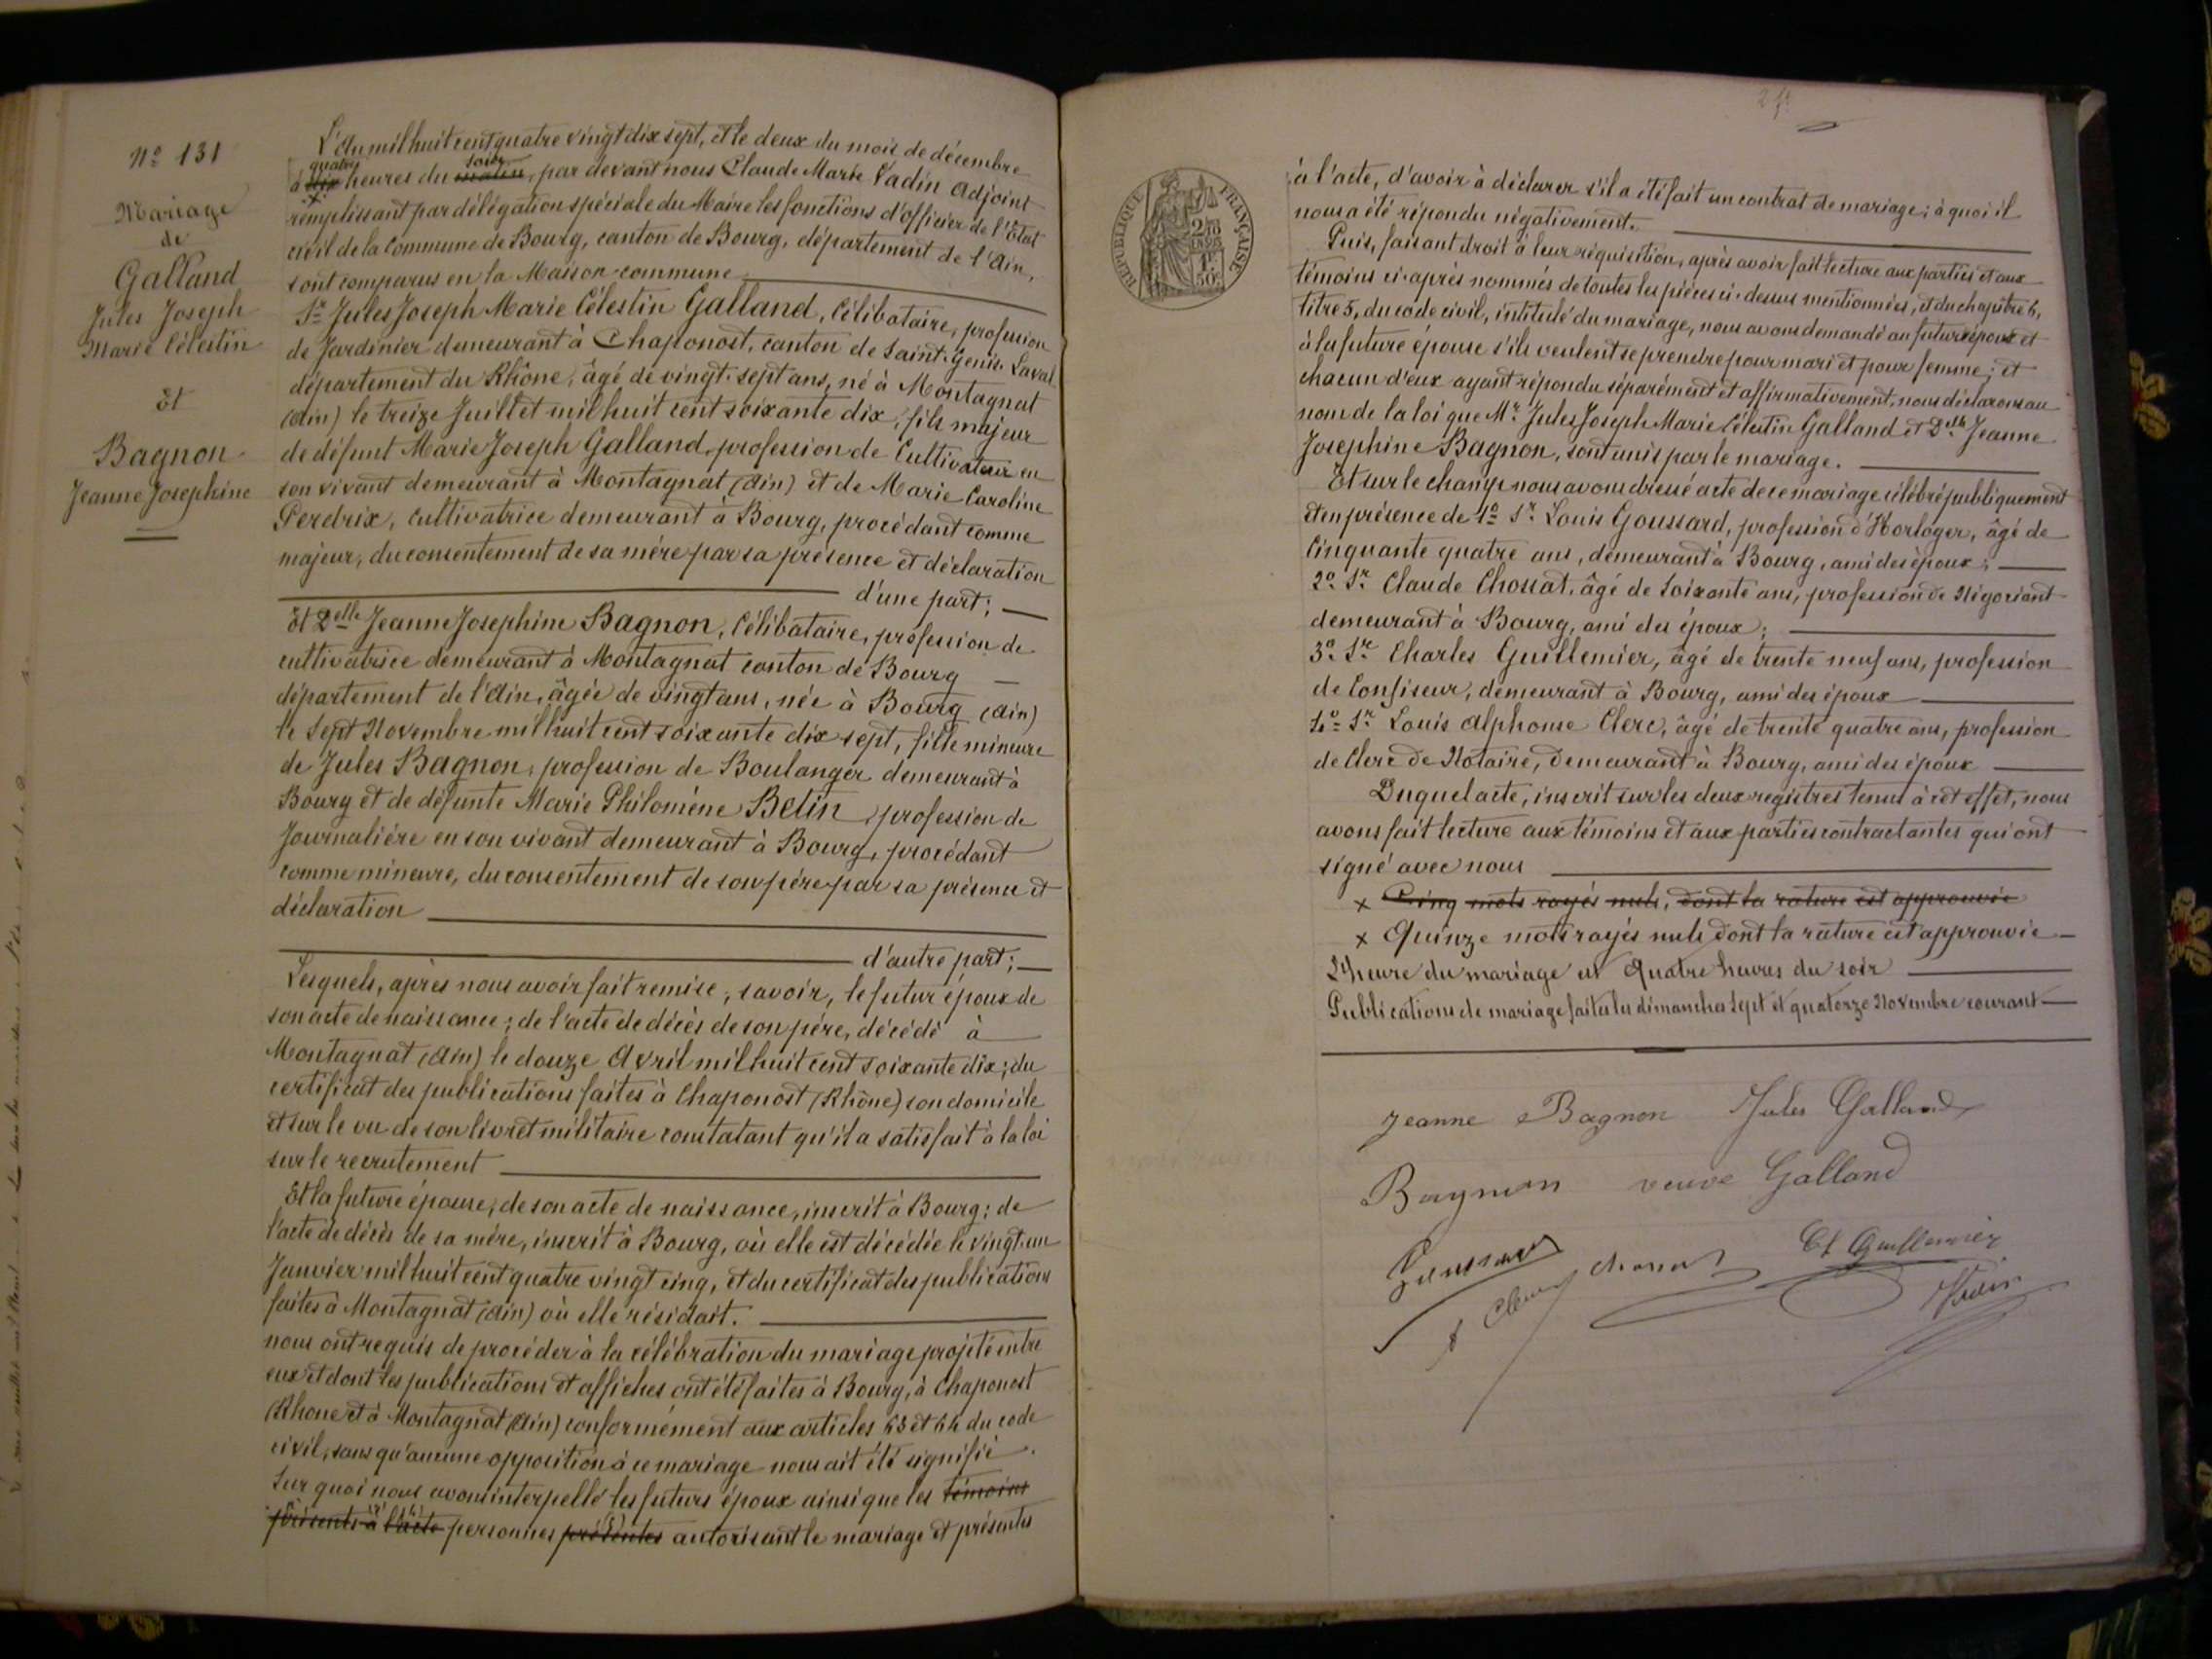 Nº 131
Mariage
de
Galland
Jules Joseph
Marie Célestin
Et
Bagnon
Jeanne Josephine
L'An mil huit cent quatre vingt dix sept, et le deux du mois de décembre
quatre soir
à dix heures du matin, par devant nous Claude Marie Vadin Adjoint
remplissant par délégation spéciale du Maire les fonctions d'officier de l'Etat
civil de la Commune de Bourg, canton de Bourg, département de l'Ain,
sont comparus en la Maison commune
Sr Jules Joseph Marie Célestin Galland, Célibataire, profession
de Jardinier demeurant à Chaponost, canton de Saint-Genis-Laval
département du Rhône, âgé de vingt-sept ans, né à Montagnat
(Ain) le treize Juillet mil huit cent soixante dix, fils majeur
de défunt Marie Joseph Galland, profession de Cultivateur en
son vivant demeurant à Montagnat (Ain) et de Marie Caroline
Perdrix, Cultivatrice demeurant à Bourg, procédant comme
majeur, du consentement de sa mère par sa présence et déclaration
d'une part;
Et Delle Jeanne Josephine Bagnon, Célibataire, profession de
cultivatrice demeurant à Montagnat canton de Bourg
département de l'Ain, âgée de vingt ans, née à Bourg (Ain)
le Sept Novembre mil huit cent soixante dix sept, fille mineure
de Jules Bagnon, profession de Boulanger demeurant à
Bourg et de défunte Marie Philomène Belin, profession de
Journalière en son vivant demeurant à Bourg, procédant
comme mineure, du consentement de son père par sa présence et
déclaration
d'autre part;
Lesquels, après nous avoir fait remise, savoir, le futur époux de
son acte de naissance; de l'acte de décès de son père, décédé à
Montagnat (Ain) le douze Avril mil huit cent soixante dix; du
certificat des publications faites à Chaponost (Rhône) son domicile
et sur le vu de son livret militaire constatant qu'il a satisfait à la loi
sur le recrutement
Et la future épouse, de son acte de naissance, inscrit à Bourg; de
l'acte de décès de sa mère, inscrit à Bourg, où elle est décédée le vingt-un
Janvier mil huit cent quatre vingt cinq, et du certificat des publications
faites à Montagnat (Ain) où elle résidait.
nous ont requis de procéder à la célébration du mariage projeté entre
eux et dont les publications et affiches ont été faites à Bourg, à Chaponost
(Rhone et à Montagnat (Ain) conformément aux articles 63 et 64 du code
civil, sans qu'aucune opposition à ce mariage nous ait été signifié.
Sur quoi nous avons interpellé les futurs époux ainsi que les témoins
présents à l'acte personnes présentes autorisant le mariage et présentes
RÉPUBLIQUE FRANÇAISE
à l'acte, d'avoir à déclarer s'il a été fait un contrat de mariage; à quoi il
nous a été répondu négativement.
Puis, faisant droit à leur réquisition, après avoir fait lecture aux parties et aux
témoins ci-après nommés de toutes les pièces ci-dessus mentionnées, et du chapitre 6,
titre 5, du code civil, intitulé du mariage, nous avons demandé au futur époux et
à la future épouse s'ils veulent se prendre pour mari et pour femme; et
chacun d'eux ayant répondu séparément et affirmativement, nous déclarons au
nom de la loi que Mr Jules Joseph Marie Célestin Galland et Delle Jeanne
Josephine Bagnon, sont unis par le mariage.
Et sur le champ nous avons dressé acte de ce mariage célébré publiquement
et en présence de 1º Sr Louis Goussard, profession d'Horloger, âgé de
Cinquante quatre ans, demeurant à Bourg, ami des époux;
2º Sr Claude Chossat, âgé de Soixante ans, profession de Négociant
demeurant à Bourg, ami des époux;
3º Sr Charles Guillemier, âgé de trente neuf ans, profession
de Confiseur, demeurant à Bourg, ami des époux
4º Sr Louis Alphonse Clerc, âgé de trente quatre ans, profession
de Clerc de Notaire, demeurant à Bourg, ami des époux
Duquel acte, inscrit sur les deux registres tenus à cet effet, nous
avons fait lecture aux témoins et aux parties contractantes qui ont
signé avec nous
x Cinq mots rayés nuls, dont la rature est approuvée
x Quinze mots rayés nuls dont la rature est approuvée
L'heure du mariage est Quatre heures du soir
Publications de mariage faites les dimanches Sept et quatorze Novembre courant
Jeanne Bagnon Jules Galland
Bagnon veuve Galland
Goussard Chossat Ch Guillemier
A Clerc Vadin